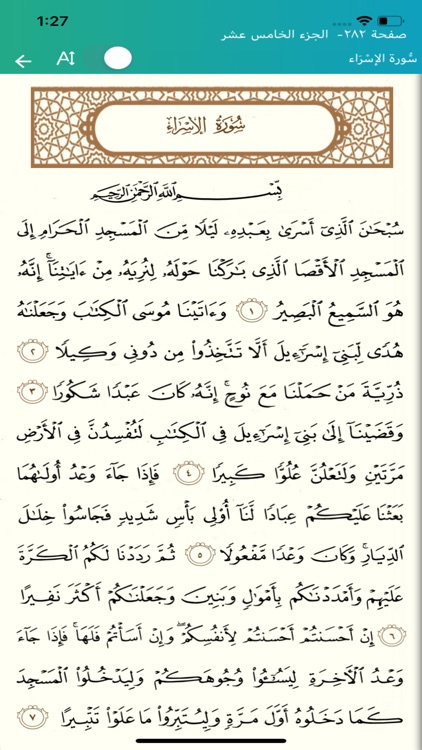 1:27
صفحة ٢٨٢- الجزء الخامس عشر
سُّورة الإسْرَاء
سُورَةُ الإِسْرَاءِ
بِسْمِ ٱللَّهِ ٱلرَّحْمَٰنِ ٱلرَّحِيمِ
سُبْحَٰنَ ٱلَّذِىٓ أَسْرَىٰ بِعَبْدِهِۦ لَيْلًا مِّنَ ٱلْمَسْجِدِ ٱلْحَرَامِ إِلَى
ٱلْمَسْجِدِ ٱلْأَقْصَا ٱلَّذِى بَٰرَكْنَا حَوْلَهُۥ لِنُرِيَهُۥ مِنْ ءَايَٰتِنَآۚ إِنَّهُۥ
هُوَ ٱلسَّمِيعُ ٱلْبَصِيرُ ١ وَءَاتَيْنَا مُوسَى ٱلْكِتَٰبَ وَجَعَلْنَٰهُ
هُدًى لِّبَنِىٓ إِسْرَٰٓءِيلَ أَلَّا تَتَّخِذُوا۟ مِن دُونِى وَكِيلًا ٢
ذُرِّيَّةَ مَنْ حَمَلْنَا مَعَ نُوحٍۚ إِنَّهُۥ كَانَ عَبْدًا شَكُورًا ٣
وَقَضَيْنَآ إِلَىٰ بَنِىٓ إِسْرَٰٓءِيلَ فِى ٱلْكِتَٰبِ لَتُفْسِدُنَّ فِى ٱلْأَرْضِ
مَرَّتَيْنِ وَلَتَعْلُنَّ عُلُوًّا كَبِيرًا ٤ فَإِذَا جَآءَ وَعْدُ أُولَىٰهُمَا
بَعَثْنَا عَلَيْكُمْ عِبَادًا لَّنَآ أُو۟لِى بَأْسٍ شَدِيدٍ فَجَاسُوا۟ خِلَٰلَ
ٱلدِّيَارِۚ وَكَانَ وَعْدًا مَّفْعُولًا ٥ ثُمَّ رَدَدْنَا لَكُمُ ٱلْكَرَّةَ
عَلَيْهِمْ وَأَمْدَدْنَٰكُم بِأَمْوَٰلٍ وَبَنِينَ وَجَعَلْنَٰكُمْ أَكْثَرَ نَفِيرًا
٦ إِنْ أَحْسَنتُمْ أَحْسَنتُمْ لِأَنفُسِكُمْۖ وَإِنْ أَسَأْتُمْ فَلَهَاۚ فَإِذَا جَآءَ
وَعْدُ ٱلْأَخِرَةِ لِيَسُۥٓـُٔوا۟ وُجُوهَكُمْ وَلِيَدْخُلُوا۟ ٱلْمَسْجِدَ
كَمَا دَخَلُوهُ أَوَّلَ مَرَّةٍ وَلِيُتَبِّرُوا۟ مَا عَلَوْا۟ تَتْبِيرًا ٧